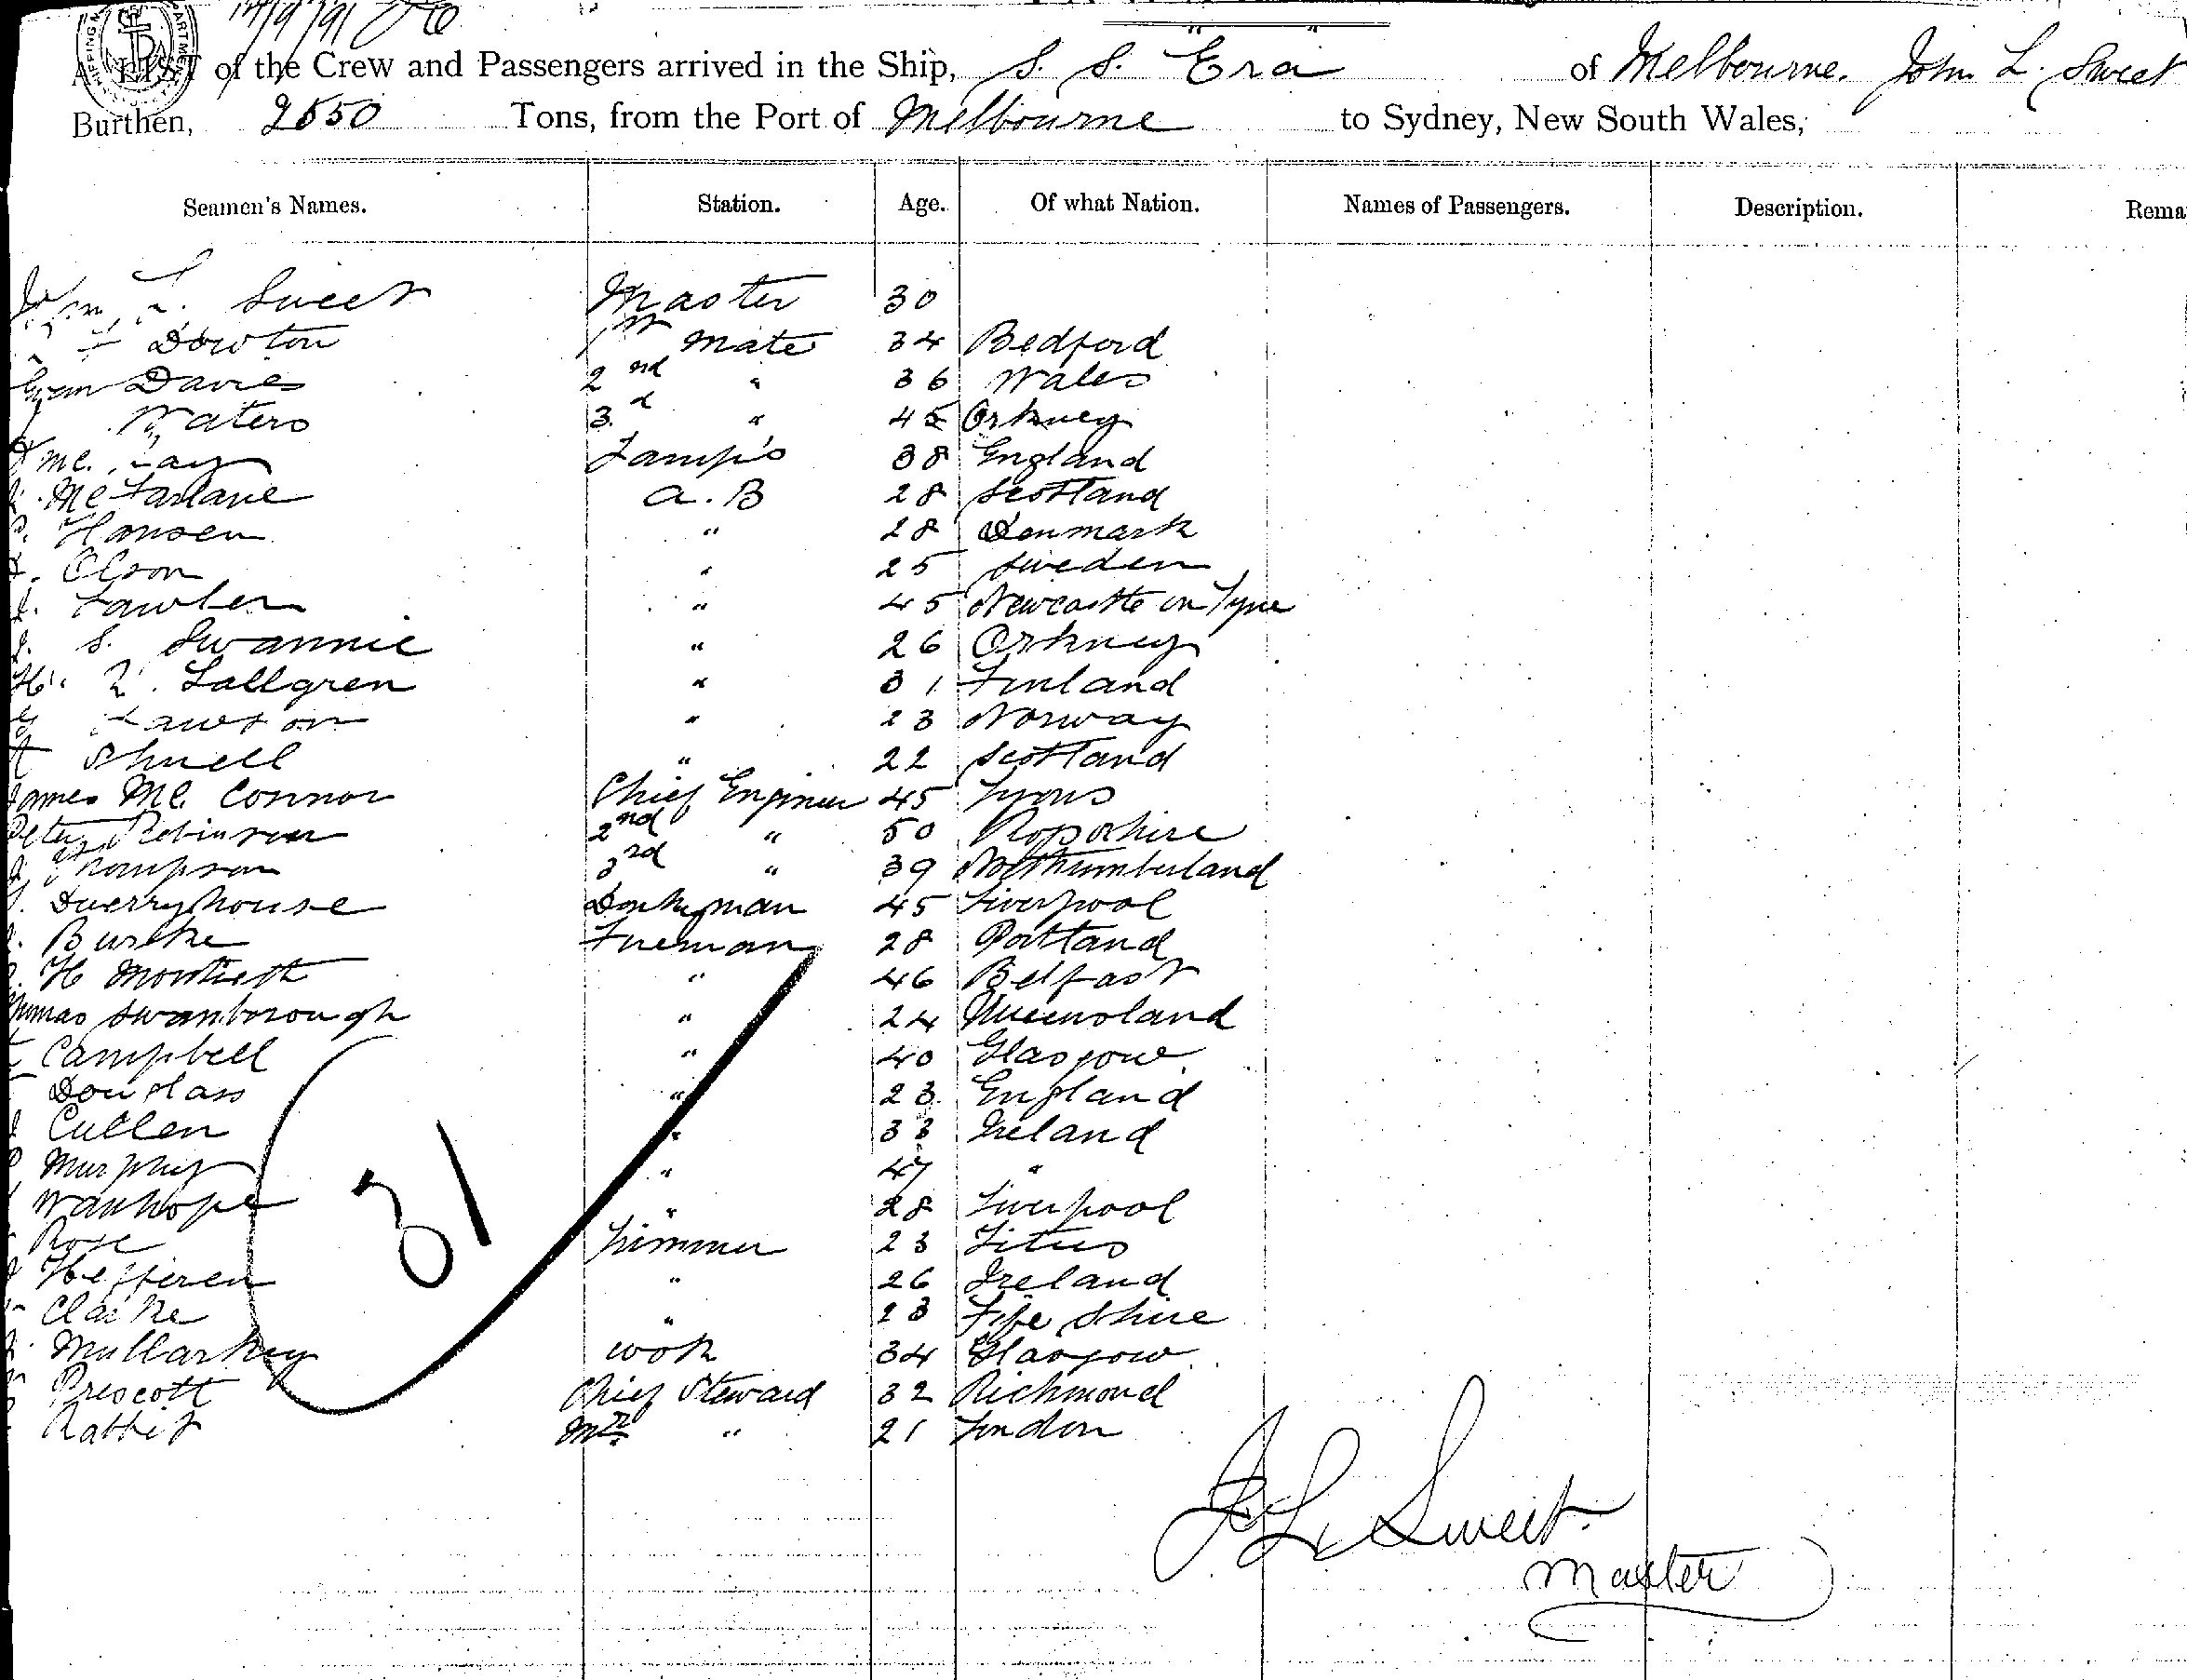 17/9/91
A LIST of the Crew and Passengers arrived in the Ship, S. S. Era of Melbourne. John L. Sweet
Burthen, 2550 Tons, from the Port of Melbourne to Sydney, New South Wales,
Seamen's Names. Station. Age. Of what Nation. Names of Passengers. Description. Rema
John L. Sweet Master 30
Dowton 1st Mate 34 Bedford
Davies 2nd " 36 Wales
Waters 3d " 45 Orkney
Mc. Lamp's 38 England
McFarlane A. B 28 Scotland
Hansen " 28 Denmark
Olson " 25 Sweden
Lawler " 45 Newcastle on Tyne
S. Swannie " 26 Orkney
Lallgren " 31 Finland
Lawson " 23 Norway
Shnell " 22 Scotland
James Mc. Connor Chief Engineer 45
Peter Robinson 2nd " 50 Ropshire
Thompson 3rd " 39 Northumberland
Dwerryhouse Donkeyman 45 Liverpool
Burke Fireman 28 Portland
H Montieth " 46 Belfast
Thomas Swanborough " 24 Queensland
Campbell " 40 Glasgow
Douglass " 23 England
Cullen " 33 Ireland
Murphy " 47 "
Wanhope " 28 Liverpool
Rose Trimmer 23
Hefferen " 26 Ireland
Clarke " 23 Fife Shire
Mullarkey Cook 34 Glasgow
Prescott Chief Steward 32 Richmond
Rabbit " 21 London
31
J L Sweet.
Master